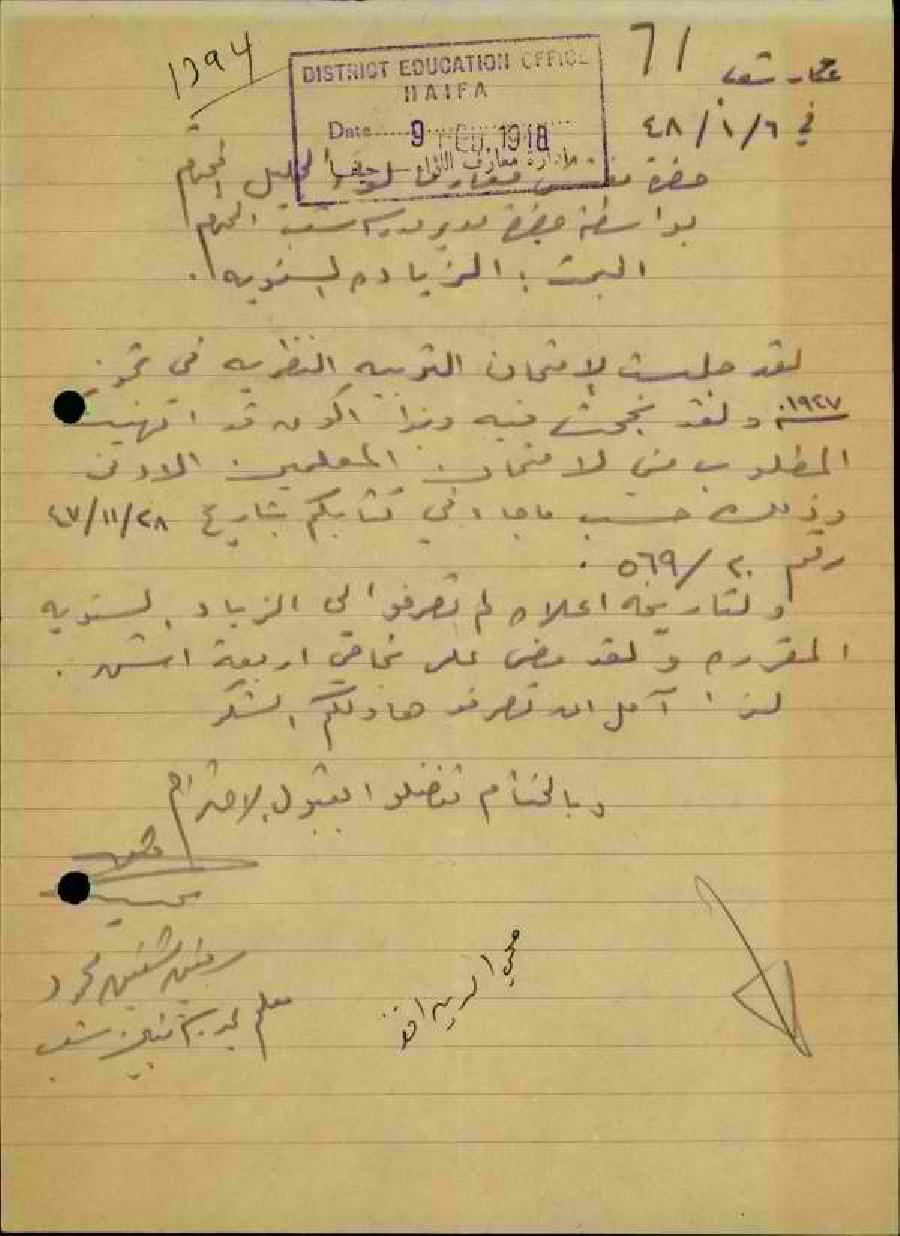 1394
71
DISTRICT EDUCATION OFFICE
HAIFA
Date 9 FEB. 1948
ادارة معارف اللواء - حيفا
في ٤٨/١/٦
حضرة مفتش معارف لواء الجليل المحترم
بواسطة حضرة مدير مدرسة شعب المحترم
البحث : الزياده السنويه .
لقد جلست لامتحان التربيه النظريه في تموز
١٩٤٧ ولقد نجحت فيه وبذا اكون قد انهيت
المطلوب مني لامتحان المعلمين الادنى
وذلك حسب ما جاء في كتابكم بتاريخ ٤٧/١١/٢٨
رقم ٥٦٩/٢٠ .
ولتاريخه اعلاه لم تصرفوا لي الزياده السنويه
المقرره ولقد مضى على نجاحي اربعة اشهر .
لذا آمل ان تصرفوها ولكم الشكر
وبالختام تفضلوا بقبول الاحترام
محمود
معلم بمدرسة شعب
محي الدين